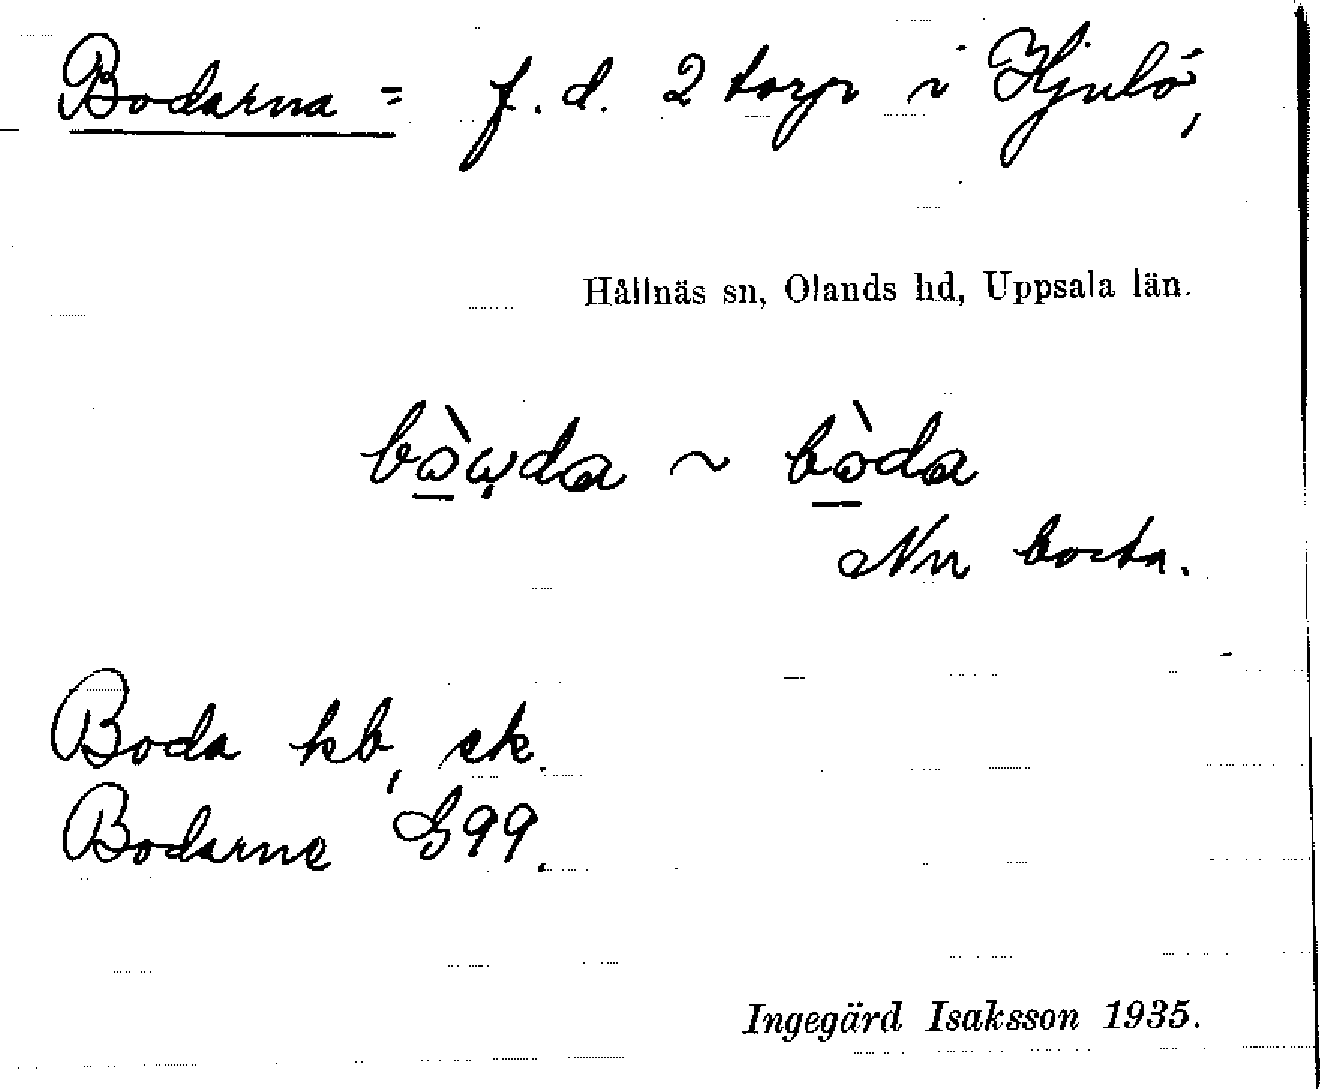 Bodarna = f. d. 2 torp i Hjulö,
Hållnäs sn, Olands hd, Uppsala län.
bòwda ~ bòda
Nu borta.
Boda kb, ek.
Bodarne G99.
Ingegärd Isaksson 1935.